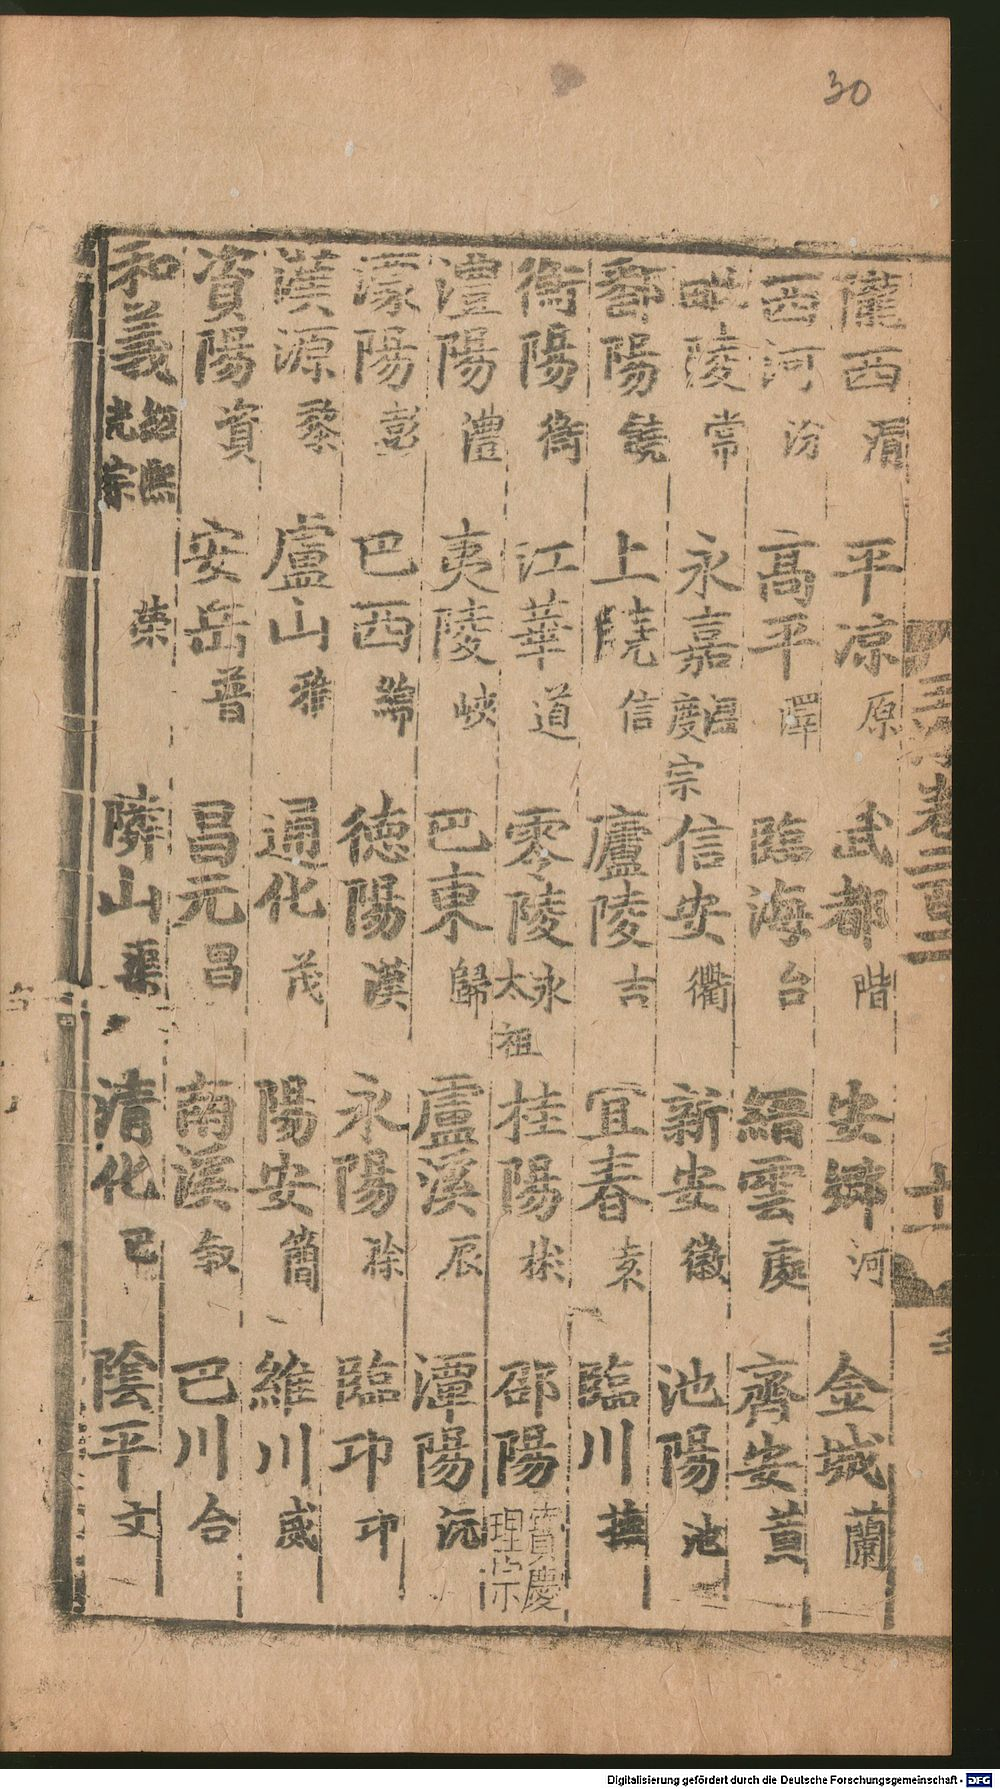 30
隴西渭 平凉原 武都階 安鄉河 金城蘭
西河汾 髙平澤 臨海台 縉雲處 齊安黃
毗陵常 永嘉溫度宗 信安衢 新安徽 池陽池
鄱陽饒 上饒信 廬陵吉 宜春袁 臨川撫
衡陽衡 江華道 零陵永太祖 桂陽郴 邵陽寶慶理宗
澧陽澧 夷陵峽 巴東歸 盧溪辰 潭陽沅
濛陽彭 巴西綿 德陽漢 永陽滁 臨邛邛
漢源黎 盧山雅 通化茂 陽安簡 維川威
資陽資 安岳普 昌元昌 南溪敘 巴川合
和義紹熙光宗榮 隣山渠 清化巴 陰平文
卷二百三
十
Digitalisierung gefördert durch die Deutsche Forschungsgemeinschaft - DFG